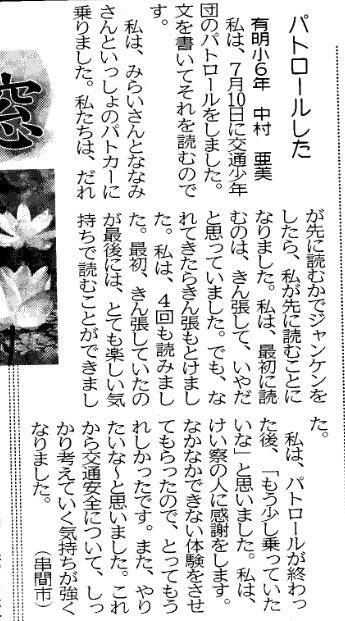 パトロールした
有明小6年 中村 亜美
私は、7月10日に交通少年
団のパトロールをしました。
文を書いてそれを読むので
す。
私は、みらいさんとななみ
さんといっしょのパトカーに
乗りました。私たちは、だれ
が先に読むかでジャンケンを
したら、私が先に読むことに
なりました。私は、最初に読
むのは、きん張して、いやだ
と思っていました。でも、な
れてきたらきん張もとけまし
た。私は、4回も読みまし
た。最初、きん張していたの
が最後には、とても楽しい気
持ちで読むことができまし
た。
私は、パトロールが終わっ
た後、「もう少し乗っていた
いな」と思いました。私は、
けい察の人に感謝をします。
なかなかできない体験をさせ
てもらったので、とってもう
れしかったです。また、やり
たいな～と思いました。これ
から交通安全について、しっ
かり考えていく気持ちが強く
なりました。
(串間市)
窓